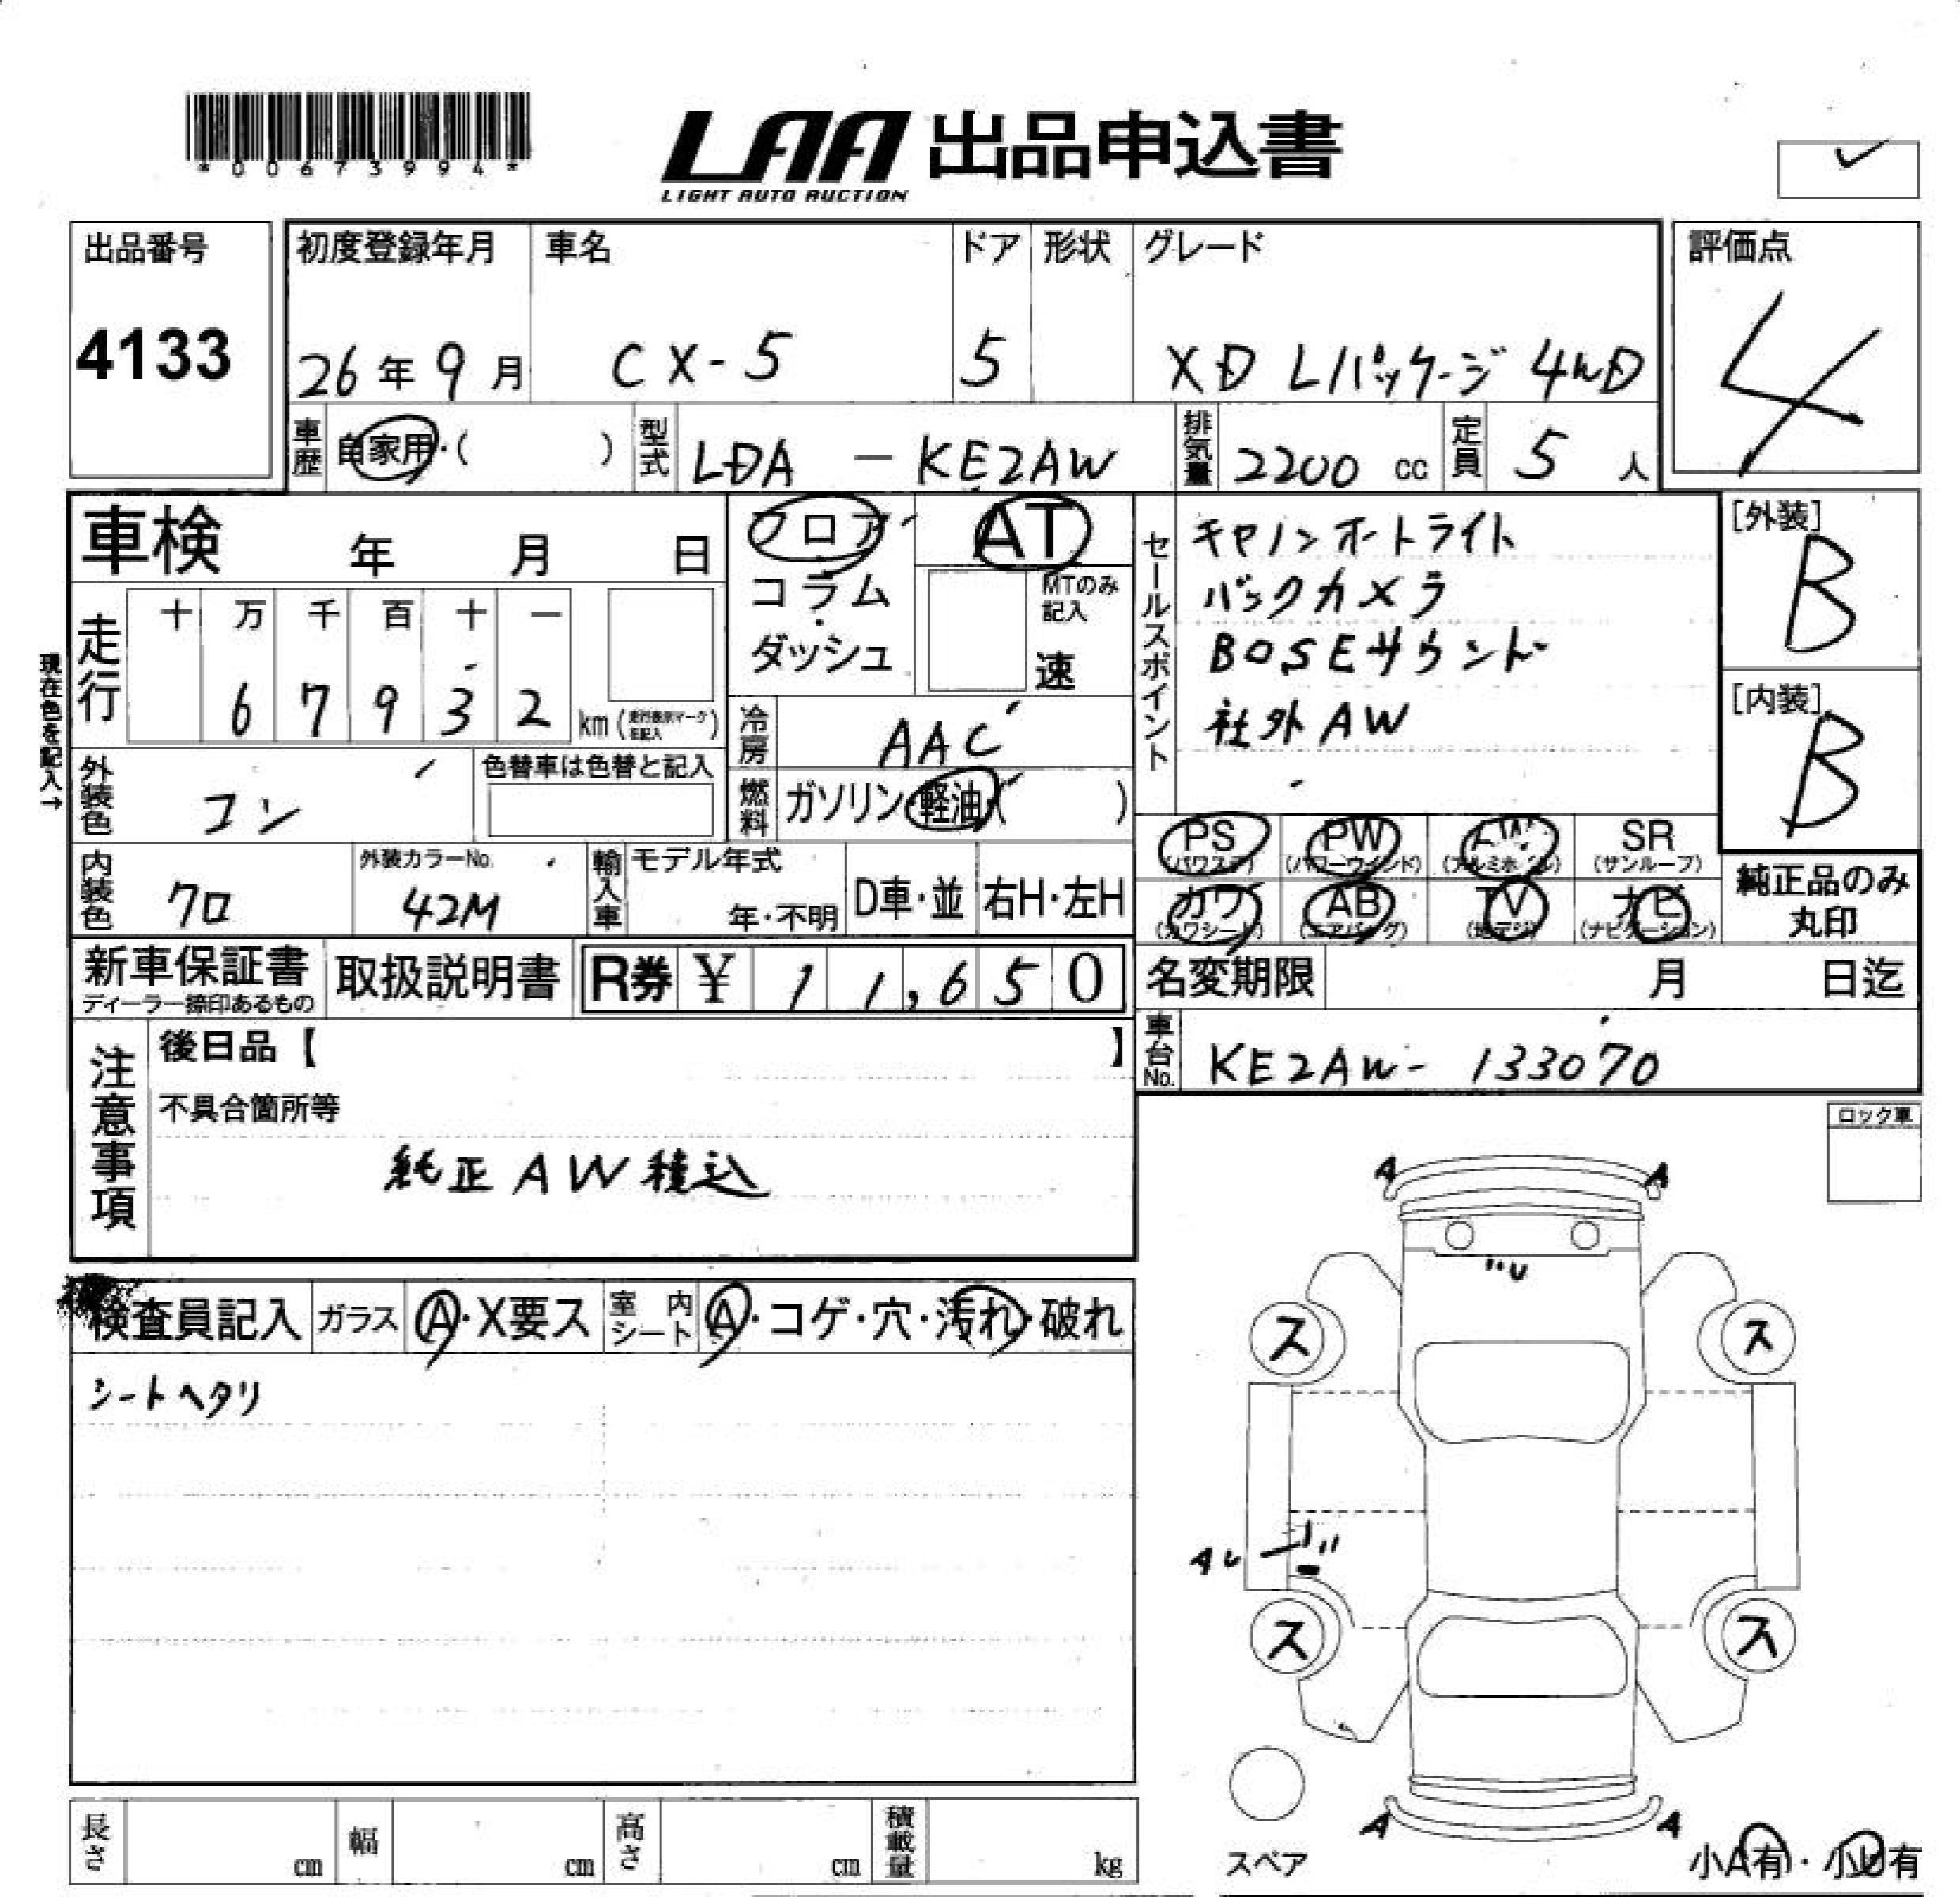 *00673994*
LAA 出品申込書
LIGHT AUTO AUCTION
出品番号
4133
初度登録年月
26年9月
車名
CX-5
ドア
5
形状
グレード
XD Lパッケージ 4WD
評価点
4
車歴
自家用・( )
型式
LDA - KE2AW
排気量
2200 cc
定員
5 人
車検 年 月 日
フロア
コラム
ダッシュ
AT
MTのみ記入
速
セールスポイント
キセノンオートライト
バックカメラ
BOSEサウンド
社外AW
[外装]
B
[内装]
B
現在色を記入→
走行
十 万 千 百 十 一
6 7 9 3 2
km (走行表示マークを記入)
冷房
AAC
外装色
コン
色替車は色替と記入
燃料
ガソリン・軽油・( )
PS (パワステ)
PW (パワーウインド)
AW (アルミホイル)
SR (サンルーフ)
カワ (カワシート)
AB (エアバッグ)
TV (地デジ)
ナビ (ナビゲーション)
純正品のみ
丸印
内装色
クロ
外装カラーNo.
42M
輸入車
モデル年式
年・不明
D車・並
右H・左H
新車保証書
ディーラー捺印あるもの
取扱説明書
R券 ¥ 1 1,650
名変期限 月 日迄
車台No.
KE2AW- 133070
注意事項
後日品【 】
不具合箇所等
純正AW積込
ロック車
検査員記入
ガラス
A・X要ス
室内シート
A・コゲ・穴・汚れ・破れ
シートヘタリ
A A
U
ス ス
AU
ス ス
A A
スペア
小A有・小U有
長さ cm
幅 cm
高さ cm
積載量 kg